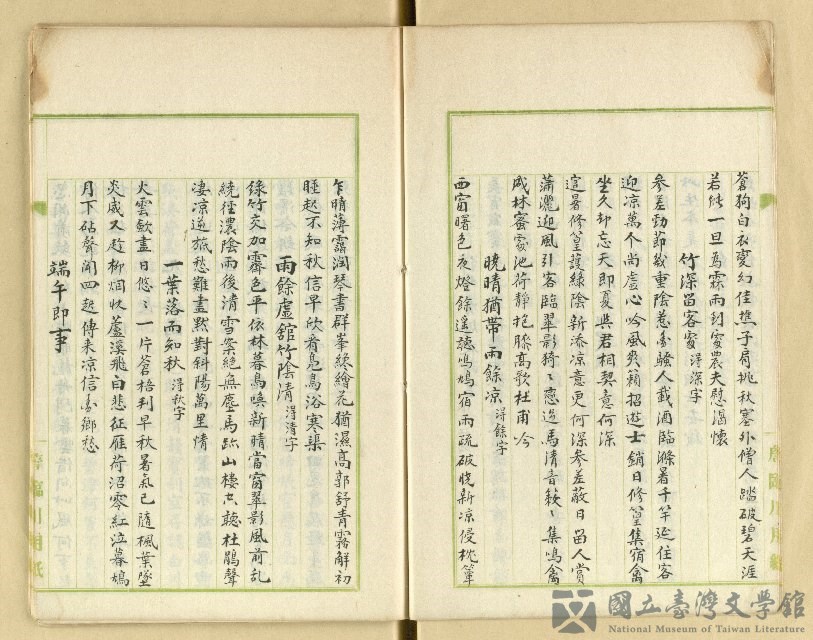 蒼狗白衣變幻佳樵子肩挑秋塞外僧人踏破碧天涯
若能一旦為霖雨到處農夫慰渴懷
竹深留客處 得深字
參差勁節數重陰惹多騷人載酒臨滌暑千竿延住客
迎凉萬个尚虛心吟風爽籟招遊士銷日修篁集宿禽
坐久却忘天即夏與君相契意何深
逭暑修篁護綠陰新添凉意更何深參差蔽日留人賞
蕭灑迎風引客臨翠影猗猗戀遊馬清音簌簌集鳴禽
成林蜜處池荷靜抱膝高歌杜甫今
曉晴猶帶雨餘凉 得餘字
西窗曙色夜燈餘遙聽鳴鳩宿雨疏破曉新凉侵枕簟
乍晴薄靄潤琴書群峯終繪花猶濕高郭舒青霧解初
睡起不知秋信早欣看鳧鳥浴寒渠
雨餘虛舘竹陰清 得清字
綠竹交加霽色平依林暮鳥喚新晴當窗翠影風前乱
繞徑濃陰雨後清雪案絕無塵馬跡山樓空聽杜鵑聲
淒凉逆旅愁難盡默對斜陽萬里情
一葉落而知秋 得秋字
火雲斂盡日悠悠一片蒼梧到早秋暑氣已隨楓葉墜
炎威又趁柳烟收蘆溪飛白悲征雁荷沼零紅泣暮鳩
月下砧聲聞四起傳来凉信多鄉愁
端午即事
國立臺灣文學館
National Museum of Taiwan Literature